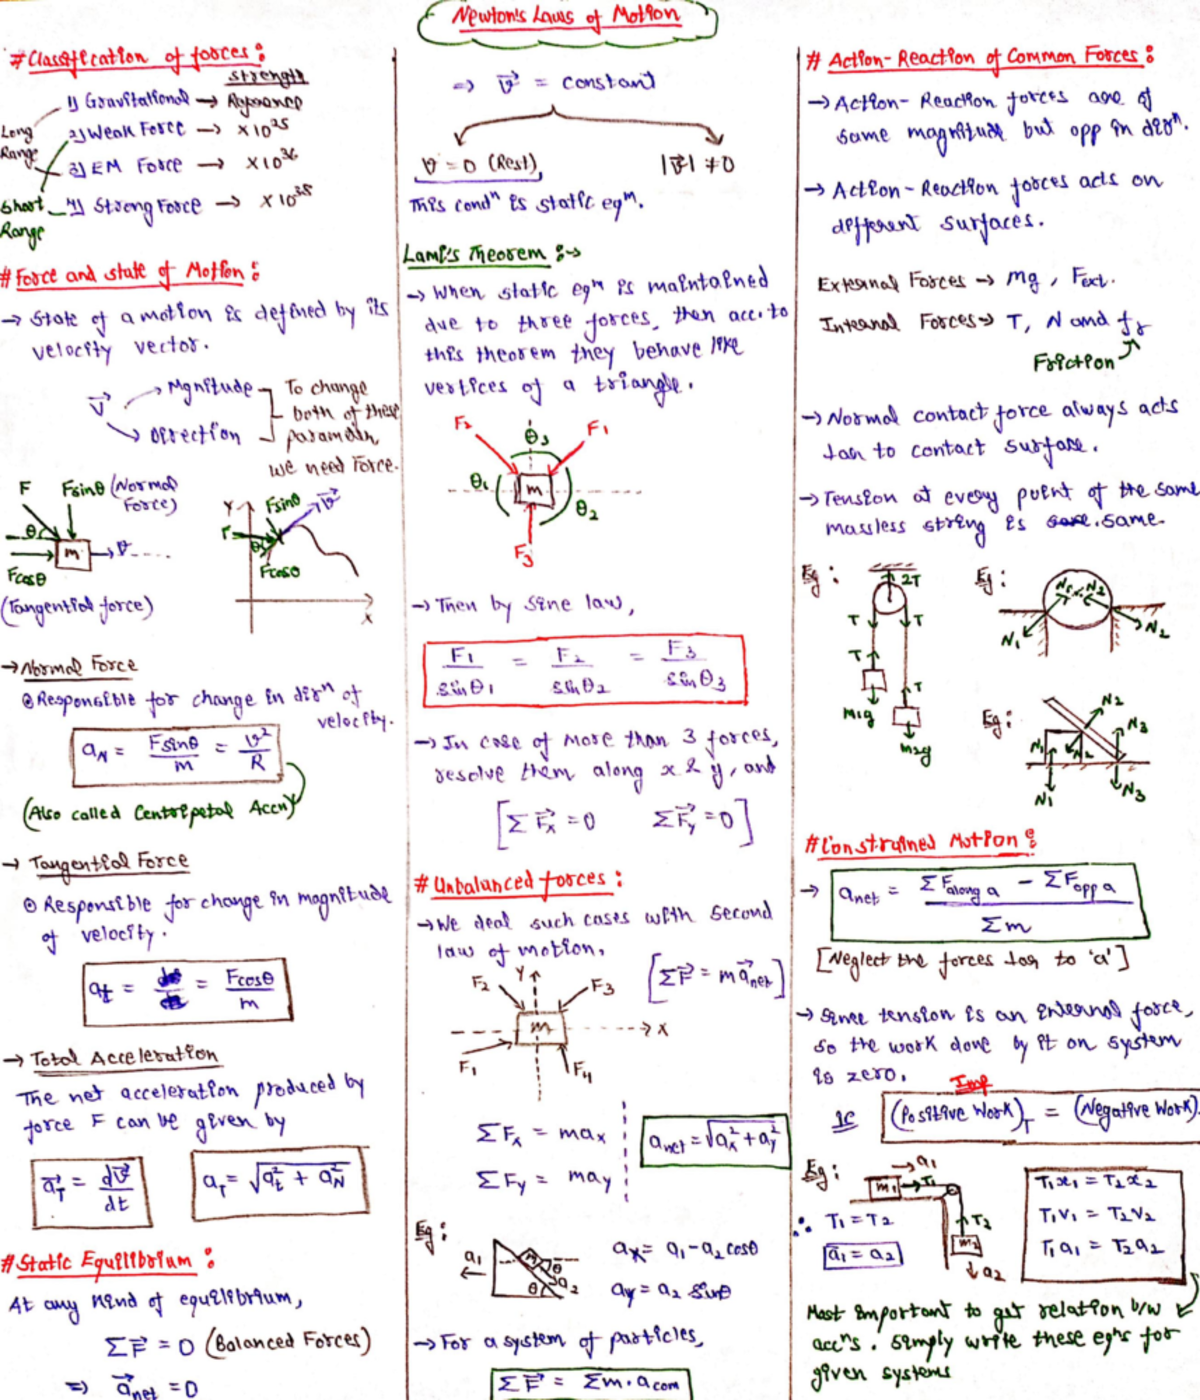 Newton's Laws of Motion
# Classification of forces :
strength
1) Gravitational → Reference
2) Weak Force → ×10²⁵
3) EM Force → ×10³⁶
4) Strong Force → ×10³⁸
Long
Range
Short
Range
# Force and state of Motion :
→ State of a motion is defined by its
velocity vector.
v⃗
Mgnitude
Direction
To change
both of these
parameters,
we need Force.
F Fsinθ (Normal
Force)
θ
m v
Fcosθ
(Tangential force)
Y Fsinθ v⃗
F
θ
Fcosθ
X
→ Normal Force
⊙ Responsible for change in dirⁿ of
velocity.
a_N = Fsinθ/m = v²/R
(Also called Centripetal Accⁿ)
→ Tangential Force
⊙ Responsible for change in magnitude
of velocity.
a_t = = Fcosθ/m
→ Total Acceleration
The net acceleration produced by
force F can be given by
a⃗_T = dv⃗/dt
a_T = √(a_t² + a_N²)
# Static Equilibrium :
At any kind of equilibrium,
ΣF⃗ = 0 (Balanced Forces)
⇒ a⃗_net = 0
⇒ v⃗ = constant
v = 0 (Rest) |v⃗| ≠ 0
This condⁿ is static eqᵐ.
Lami's Theorem :→
→ When static eqᵐ is maintained
due to three forces, then acc. to
this theorem they behave like
vertices of a triangle.
F₂ θ₃ F₁
θ₁ m θ₂
F₃
→ Then by sine law,
F₁/sinθ₁ = F₂/sinθ₂ = F₃/sinθ₃
→ In case of more than 3 forces,
resolve them along x & y, and
[ΣF⃗ₓ = 0 ΣF⃗_y = 0]
# Unbalanced forces :
→ We deal such cases with second
law of motion.
[ΣF⃗ = ma⃗_net]
F₂ Y F₃
m X
F₁ F₄
ΣFₓ = maₓ
ΣF_y = ma_y
a_net = √(aₓ² + a_y²)
Eg :
a₁ m θ
θ a₂
aₓ = a₁ - a₂cosθ
a_y = a₂ sinθ
→ For a system of particles,
ΣF⃗ = Σm · a_com
# Action-Reaction of Common Forces :
→ Action-Reaction forces are of
same magnitude but opp in dirⁿ.
→ Action-Reaction forces acts on
different surfaces.
External Forces → mg, F_ext.
Internal Forces → T, N and f_r
Friction
→ Normal contact force always acts
lar to contact surface.
→ Tension at every point of the same
massless string is same.
Eg :
2T
T T
T
T
m₁g
m₂g
Eg :
N₁ N₂
N₁ N₂
Eg :
N₂
N₁ N₂ N₃
N₁ N₃
# Constrained Motion :
→ a_net = (ΣF_along a - ΣF_opp a)/Σm
[Neglect the forces lar to 'a']
→ Since tension is an internal force,
so the work done by it on system
is zero.
Imp
ie (Positive Work)_T = (Negative Work)
Eg :
a₁
m₁ T₁
T₂
m₂
a₂
∴ T₁ = T₂
a₁ = a₂
T₁x₁ = T₂x₂
T₁v₁ = T₂v₂
T₁a₁ = T₂a₂
Most important to get relation b/w
accⁿs. simply write these eqⁿs for
given systems